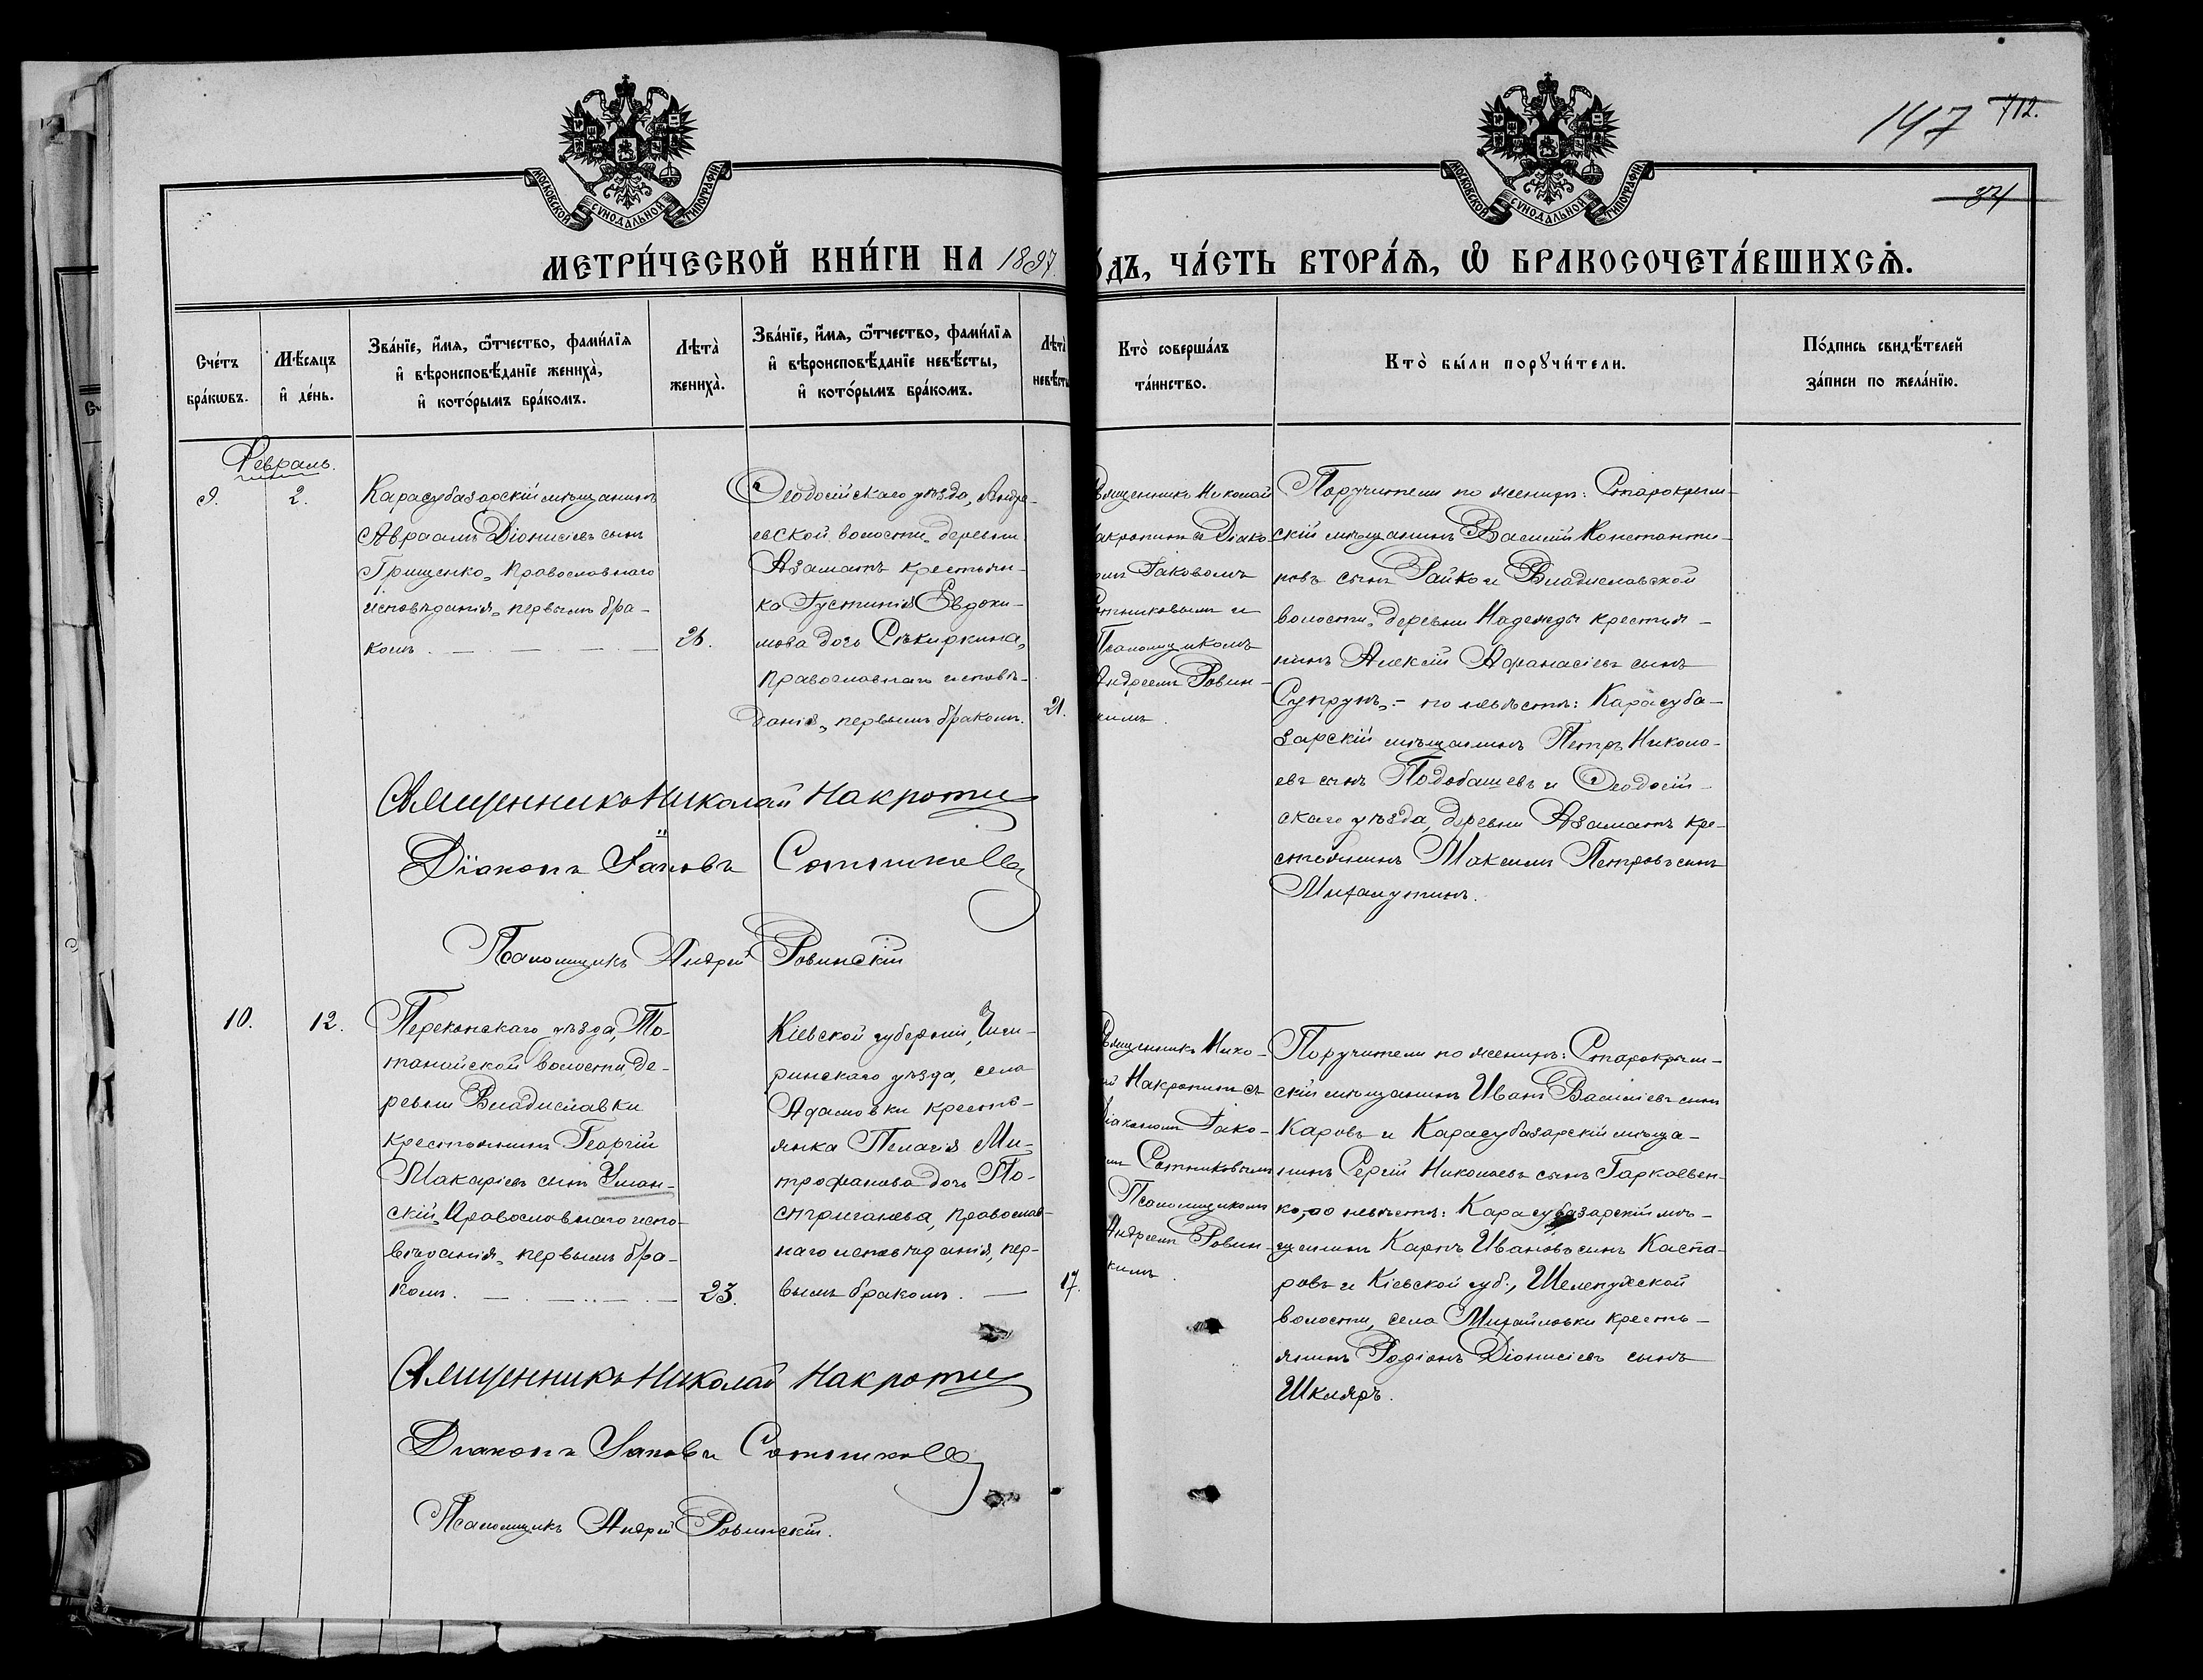 147 712.
84
МОСКОВСКОЙ СѴНОДАЛЬНОЙ ТИПОГРАФІИ
МОСКОВСКОЙ СѴНОДАЛЬНОЙ ТИПОГРАФІИ
МЕТРИ́ЧЕСКОЙ КНИ́ГИ НА 1897.
о́дъ, ча́сть втора́ѧ, ѽ бракосочета́вшихсѧ.
Сче́тъ
бра́кѡвъ.
Мѣ́сяцъ
и҆ де́нь.
Зва́нїе, и҆́мѧ, ѻ҆́тчество, фами́лїѧ
и҆ вѣроисповѣ́данїе жениха̀,
и҆ кото́рымъ бра́комъ.
Лѣта̀
жениха̀.
Зва́нїе, и҆́мѧ, ѻ҆́тчество, фами́лїѧ
и҆ вѣроисповѣ́данїе невѣ́сты,
и҆ кото́рымъ бра́комъ.
Лѣта̀
невѣ́сты
Кто̀ соверша́лъ
та́инство.
Кто̀ бы́ли порꙋчи́тели.
По́дпись свидѣ́телей
за́писи по жела́нїю.
Февраль.
9.
2.
Карасубазарскій мѣщанинъ
Авраамъ Діонисіевъ сынъ
Грищенко, православнаго
исповѣданія, первымъ бра-
комъ.
26.
Ѳеодосійскаго уѣзда, Андре-
евской волости, деревни
Азаматъ крестьян-
ка Іустинія Евдоки-
мова дочь Сѣкиркина,
православнаго исповѣ-
данія, первымъ бракомъ.
21.
Священникъ Николай
Накропинъ съ Діако-
омъ Іаковомъ
Сотниковымъ и
Псаломщикомъ
Андреемъ Ровин-
кимъ.
Поручители по женихѣ: Старокрым-
скій мѣщанинъ Василій Константи-
новъ сынъ Райко и Владиславской
волости, деревни Надежды крестья-
нинъ Алексій Афанасіевъ сынъ
Супрунъ,- по невѣстѣ: Карасуба-
зарскій мѣщанинъ Петръ Никола-
евъ сынъ Подобашевъ и Ѳеодосій-
скаго уѣзда, деревни Азаматъ кре-
стьянинъ Максимъ Петровъ сынъ
Михалутинъ.
Священникъ Николай Накропи
Діаконъ Іаковъ Сотников
Псаломщикъ Андрей Ровинскій
10.
12.
Перекопскаго уѣзда,
деревни Владиславки
крестьянинъ Георгій
Макаріевъ сынъ Уман-
скій, православнаго испо-
вѣданія, первымъ бра-
комъ.
23.
Кіевской губерніи, Чиги-
ринскаго уѣзда, села
Адамовки кресть-
янка Пелагія Ми-
трофанова дочь По-
стриганева, православ-
наго исповѣданія, пер-
вымъ бракомъ.
17.
Священникъ Нико-
ай Накропинъ съ
Діакономъ Іако-
омъ Сотниковымъ
Псаломщикомъ
Андреемъ Ровин-
кимъ.
Поручители по женихѣ: Старокрым-
скій мѣщанинъ Иванъ Василіевъ сынъ
Каровъ и Карасубазарскій мѣща-
нинъ Сергій Николаевъ сынъ Гаркавен-
ко, по невѣстѣ: Карасубазарскій мѣ-
щанинъ Карпъ Ивановъ сынъ Каспа-
ровъ и Кіевской губ., Шелепухской
волости, села Михайловки кресть-
янинъ Родіонъ Діонисіевъ сынъ
Шкляръ.
Священникъ Николай Накропи
Діаконъ Іаковъ Сотников
Псаломщикъ Андрей Ровинскій.